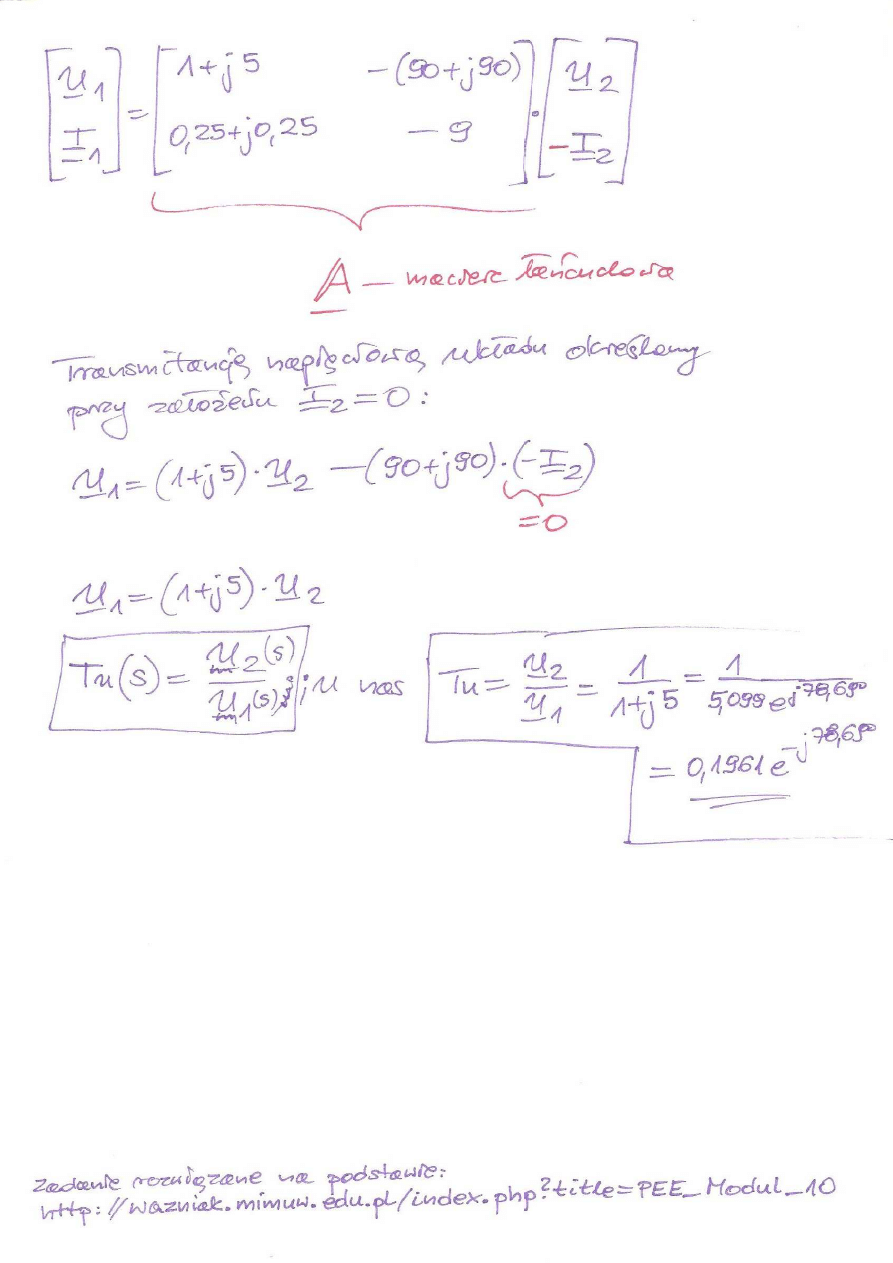 [U1 I1] = [1+j5 -(90+j90) 0,25+j0,25 -9] · [U2 -I2]
A – macierz łańcuchowa
Transmitancję napięciową układu określamy
przy założeniu I2=0:
U1=(1+j5)·U2 -(90+j90)·(-I2)
=0
U1=(1+j5)·U2
Tu(s) = U2(s)/U1(s) ; u nas Tu = U2/U1 = 1/(1+j5) = 1/(5,099 e^j78,69°)
= 0,1961 e^-j78,69°
Zadanie rozwiązane na podstawie:
http://wazniak.mimuw.edu.pl/index.php?title=PEE_Modul_10